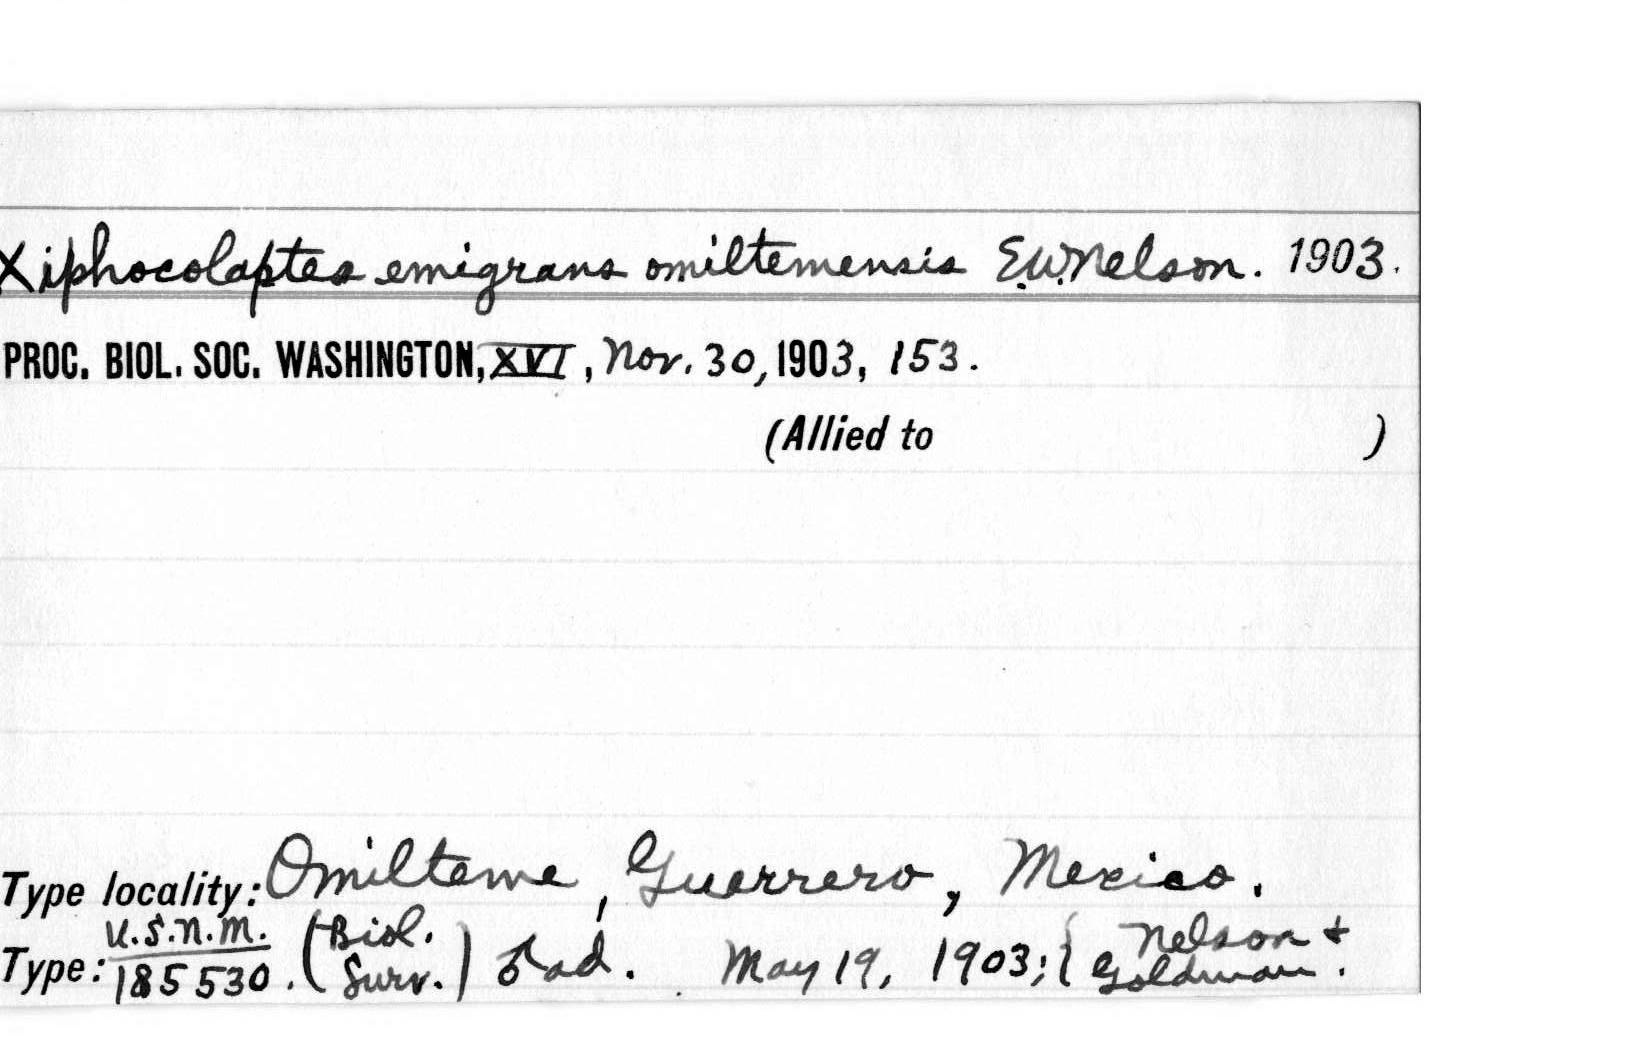 Xiphocolaptes emigrans omiltemensis E.W.Nelson. 1903.
PROC. BIOL. SOC. WASHINGTON, XVI, Nov. 30, 1903, 153.
(Allied to )
Type locality: Omilteme, Guerrero, Mexico.
U.S.N.M. (Biol. Nelson &
Type: 185530. Surv.) ♂ ad. May 19, 1903; { Goldman.